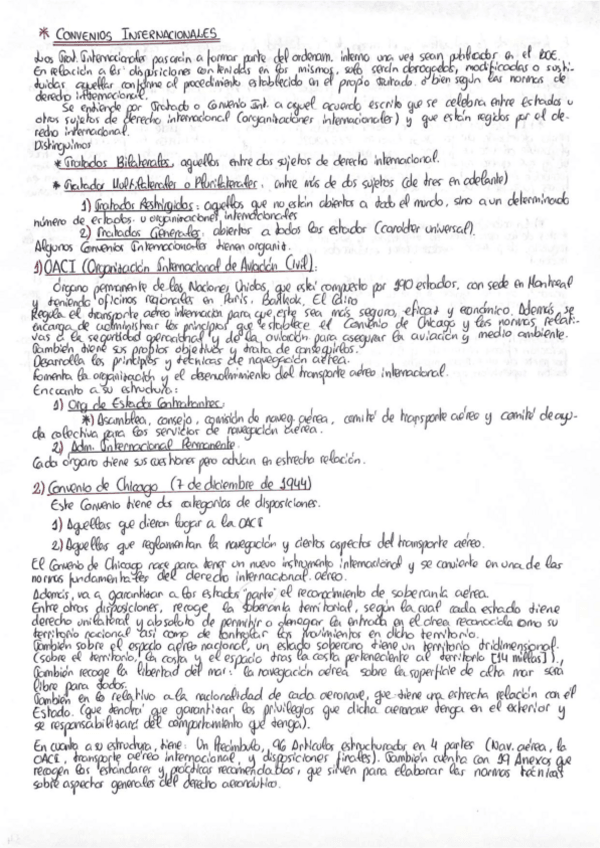 * CONVENIOS INTERNACIONALES
Los Trat. Internacionales pasarán a formar parte del ordenam. interno una vez sean publicados en el BOE.
En relación a las disposiciones contenidas en los mismos, solo serán derogadas, modificadas o susti-
tuidas aquellas conforme al procedimiento establecido en el propio tratado o bien según las normas de
derecho internacional.
Se entiende por Tratado o Convenio Int. a aquel acuerdo escrito que se celebra entre estados u
otros sujetos de derecho internacional (organizaciones internacionales) y que están regidos por el de-
recho internacional.
Distinguimos
* Tratados Bilaterales, aquellos entre dos sujetos de derecho internacional.
* Tratados Multilaterales o Plurilaterales. entre más de dos sujetos (de tres en adelante)
1) Tratados Restringidos: aquellos que no están abiertos a todo el mundo, sino a un determinado
número de estados u organizaciones internacionales
2) Tratados Generales: abiertos a todos los estados (carácter universal).
Algunos Convenios Internacionales tienen organiz.
1) OACI (Organización Internacional de Aviación Civil).
Órgano permanente de las Naciones Unidas, que está compuesto por 190 estados, con sede en Montreal
y teniendo oficinas regionales en París, Bankok, El Cairo
Regula el transporte aéreo internacion para que este sea más seguro, eficaz y económico. Además, se
encarga de administrar los principios que establece el Convenio de Chicago y las normas relati-
vas a la seguridad operacional y de la aviación para asegurar la aviación y medio ambiente.
También tiene sus propios objetivos y trata de conseguirlos.
Desarrolla los principios y técnicas de navegación aérea.
Fomenta la organización y el desenvolvimiento del transporte aéreo internacional.
Encuanto a su estructura:
1) Org de Estados Contratantes
*) Asamblea, consejo, comisión de naveg. aérea, comité de transporte aéreo y comité de ayu-
da colectiva para los servicios de navegación aérea.
2) Adm. Internacional Permanente.
Cada órgano tiene sus cuestiones pero actúan en estrecha relación.
2) Convenio de Chicago (7 de diciembre de 1944)
Este Convenio tiene dos categorías de disposiciones.
1) Aquellas que dieron lugar a la OACI
2) Aquellas que reglamentan la navegación y ciertos aspectos del transporte aéreo.
El Convenio de Chicago nace para tener un nuevo instrumento internacional y se convierte en una de las
normas fundamentales del derecho internacional aéreo.
Además, va a garantizar a los estados parte el reconocimiento de soberanía aérea.
Entre otras disposiciones, recoge la soberanía territorial, según la cual cada estado tiene
derecho unilateral y absoluto de permitir o denegar la entrada en el área reconocida como su
territorio nacional así como de controlar los movimientos en dicho territorio.
También sobre el espacio aéreo nacional, un estado soberano tiene un territorio tridimensional
(sobre el territorio, la costa y el espacio tras la costa perteneciente al territorio [14 millas]).
También recoge la libertad del mar: la navegación aérea sobre la superficie de alta mar será
libre para todos.
También en lo relativo a la nacionalidad de cada aeronave, que tiene una estrecha relación con el
Estado. (que tendrá que garantizar los privilegios que dicha aeronave tenga en el exterior y
se responsabilizará del comportamiento que tenga).
En cuanto a su estructura, tiene: Un Preámbulo, 96 Artículos estructurados en 4 partes (Nav. aérea, la
OACI, transporte aéreo internacional, y disposiciones finales). También cuenta con 19 Anexos que
recogen los estándares y prácticas recomendadas, que sirven para elaborar las normas técnicas
sobre aspectos generales del derecho aeronáutico.